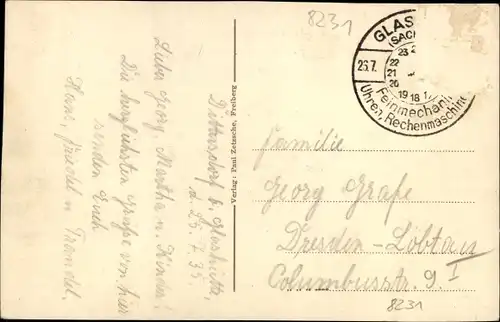 8231
GLAS
(SAC
23
22
21
20
19 18 1
26.7.
Feinmechani
Uhren, Rechenmaschin
Verlag: Paul Zetzsche, Freiberg
Dittersdorf b. Glashütte,
d. 25.7.35.
Liebe Georg, Martha u. Kinder!
Die herzlichsten Grüße von hier
senden Euch
Hans, Friedel u.
Familie
Georg Grafe
Dresden-Löbtau
Columbusstr. 9 I
8231